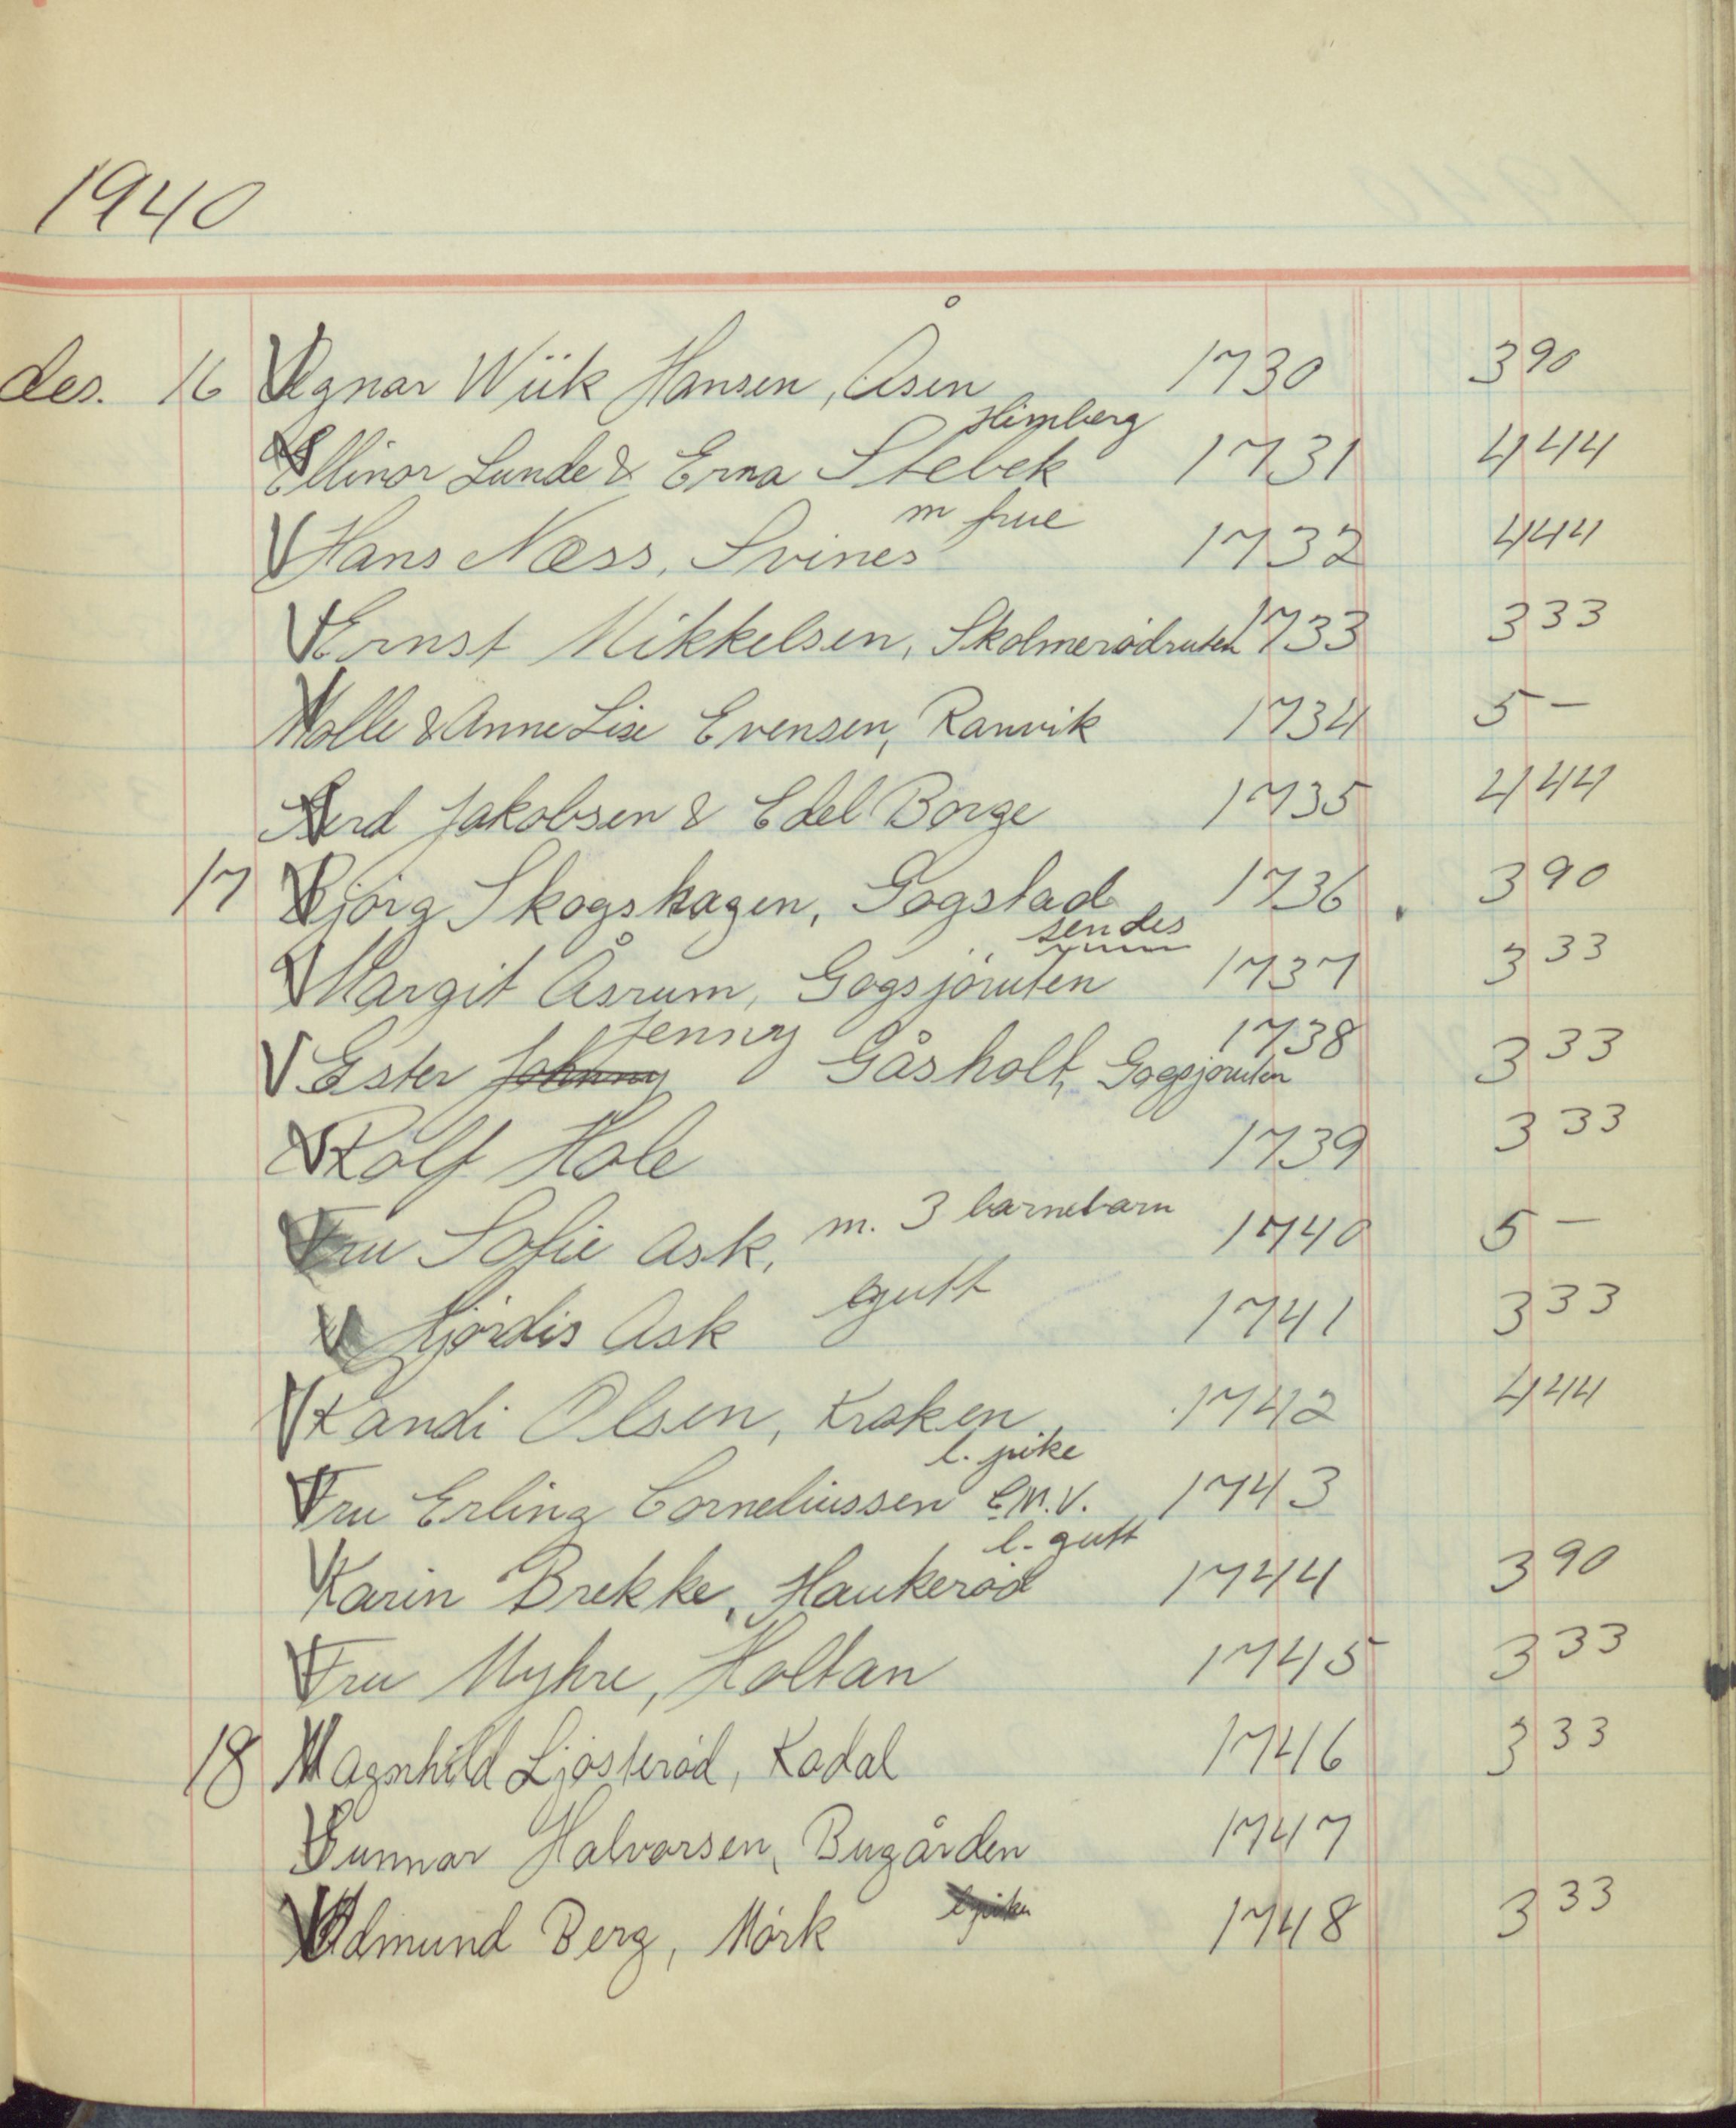 1940
des. 16 Agnar Wiik Hansen, Åsen 1730 3 90
Himberg
Ellinor Lunde & Erna Stebek 1731 4 44
m frue
Hans Næss, Svines 1732 4 44
Ernst Mikkelsen, Skolmerödruten 1733 3 33
Molle & Anne Lise Evensen, Ranvik 1734 5 —
Gerd Jakobsen & Edel Borge 1735 4 44
17 Björg Skogshagen, Gogstad 1736 3 90
sendes
Margit Åsrum, Gogsjöruten 1737 3 33
Jenny
Ester Johnny Gåsholt, Gogsjöruten 1738 3 33
Rolf Hole 1739 3 33
Fru Sofie Ask, m. 3 barnebarn 1740 5 —
Hjördis Ask gutt 1741 3 33
Kandi Olsen, Kraken 1742 4 44
l. pike
Fru Erling Corneliussen E.M.V. 1743
l. gutt
Karin Brekke, Haukeröd 1744 3 90
Fru Myhre, Holtan 1745 3 33
18 Magnhild Ljösteröd, Kodal 1746 3 33
Gunnar Halvorsen, Bugården 1747
Odmund Berg, Mörk l pike 1748 3 33